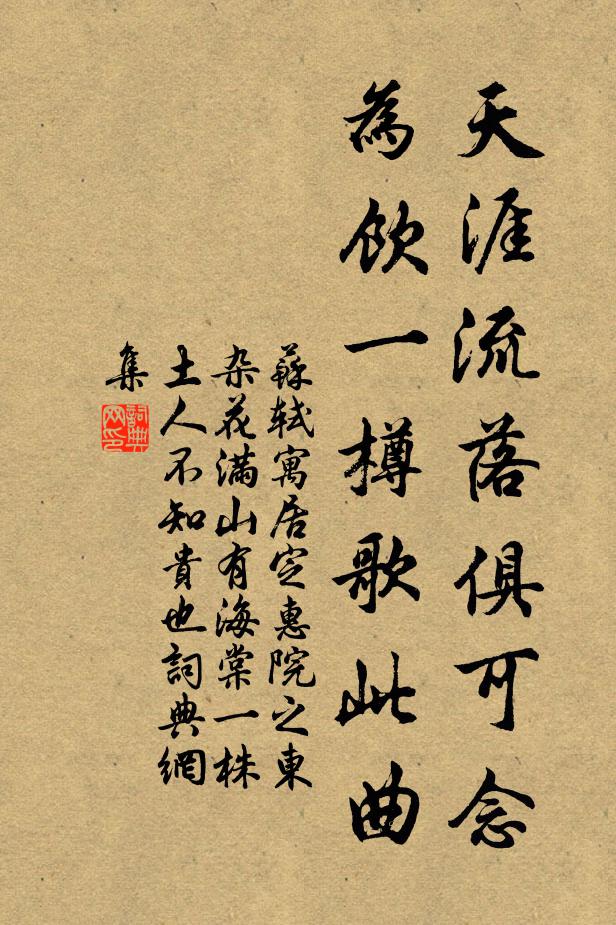 天涯流落俱可念
為飲一樽歌此曲
蘇軾寓居定惠院之東
杂花滿山有海棠一株
土人不知貴也詞典網
集
詞典
网印